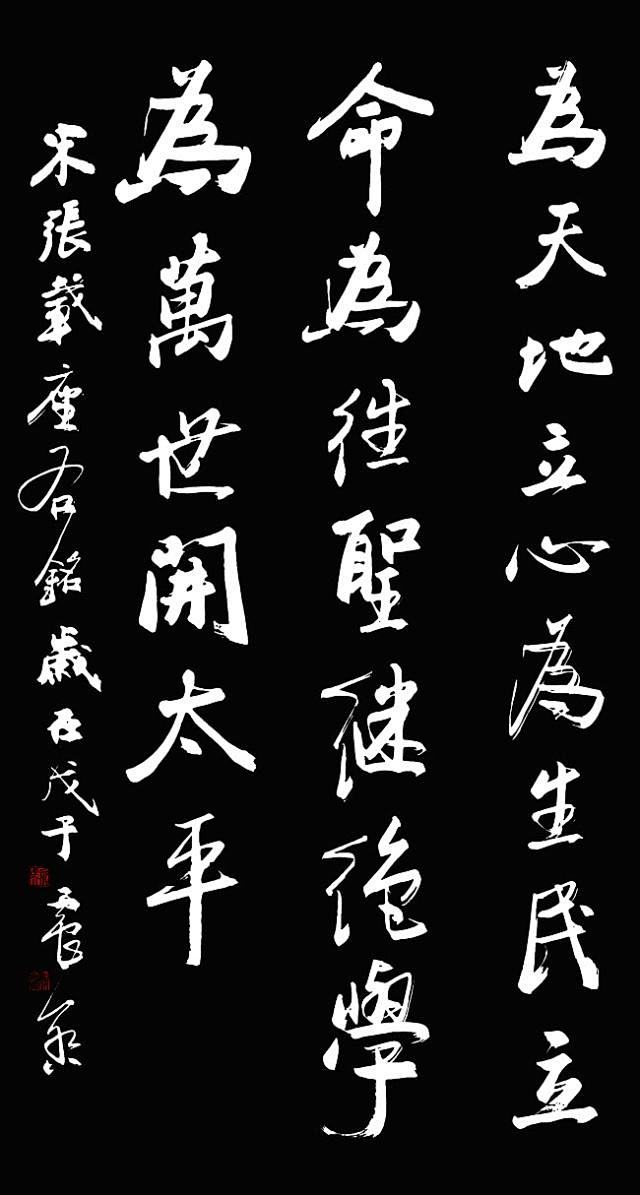 為天地立心為生民立
命為往聖継絶學
為萬世開太平
宋張載座右銘歲在戊子震